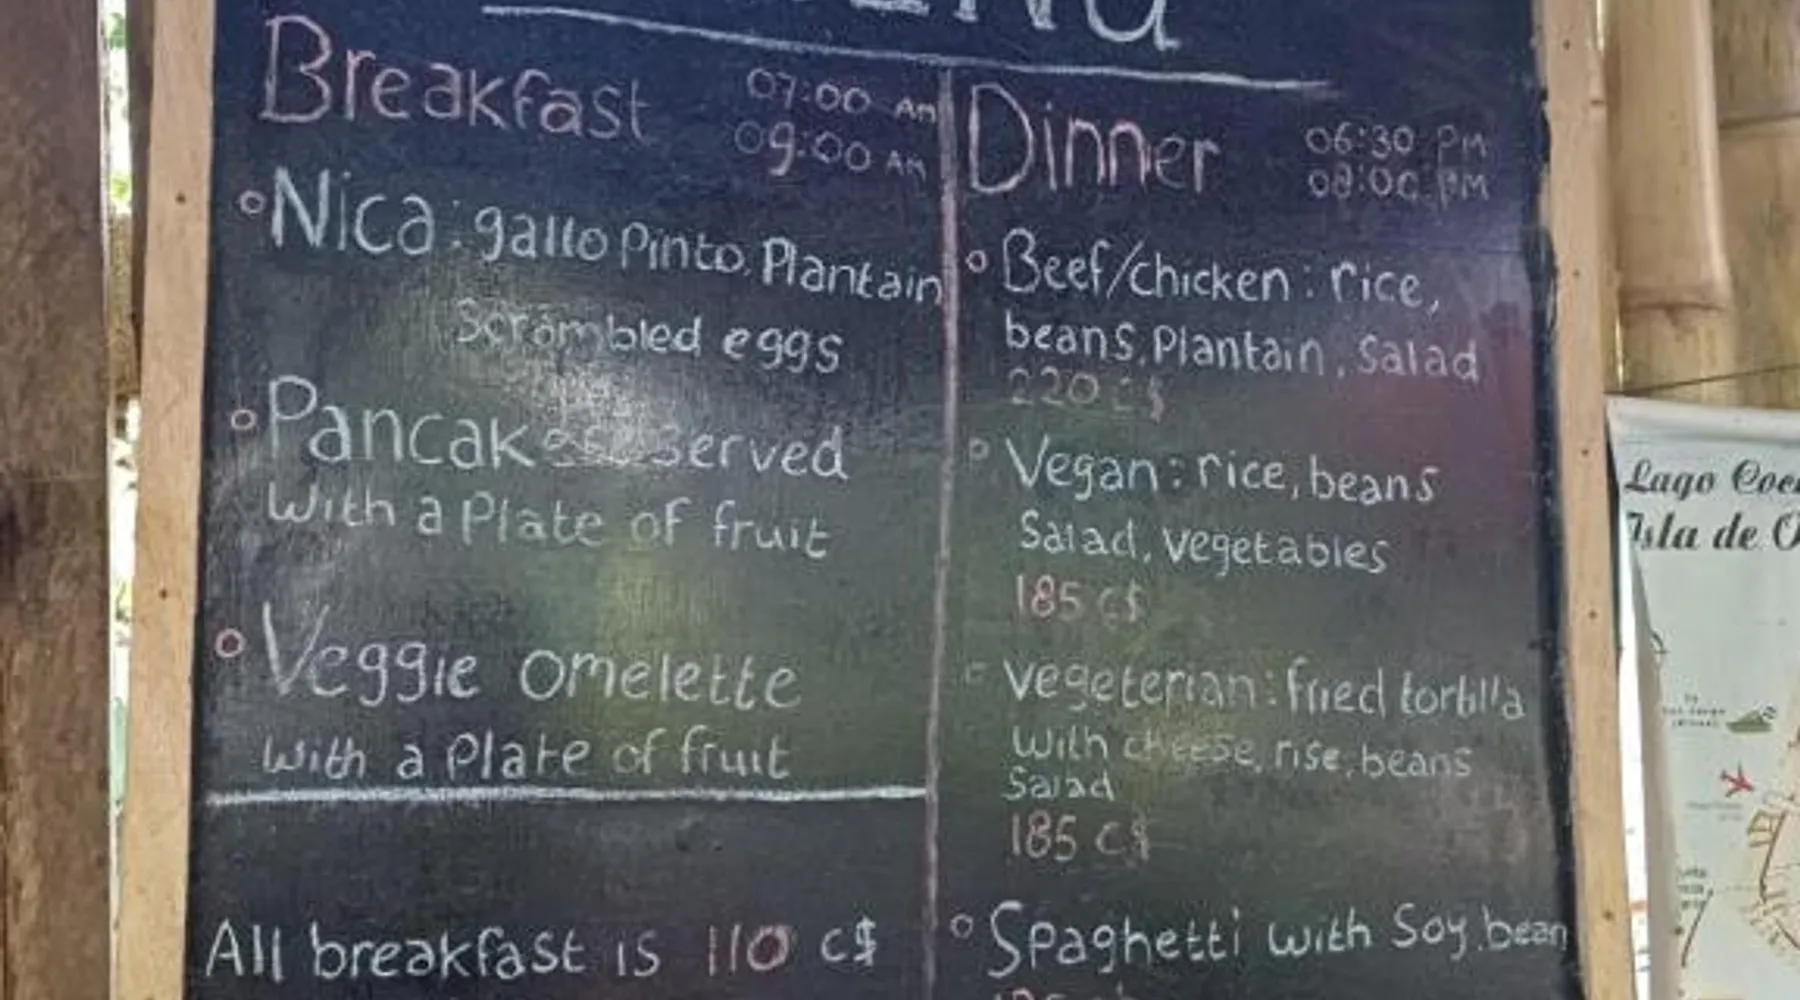 Breakfast 07:00 AM
09:00 AM
Nica: gallo Pinto, Plantain
Scrambled eggs
Pancakes served
with a Plate of fruit
Veggie omelette
with a Plate of fruit
All breakfast is 110 C$
Dinner 06:30 PM
08:00 PM
Beef/chicken: rice,
beans, Plantain, Salad
220 C$
Vegan: rice, beans
Salad, vegetables
185 C$
Vegeterian: fried tortilla
with cheese, rise, beans
Salad
185 C$
Spaghetti with Soy bean
Lago
Isla de